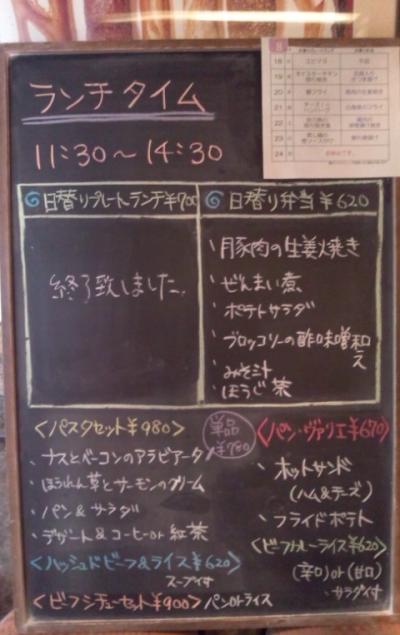 ランチタイム
11:30～14:30
日替りプレートランチ¥700
終了致しました
日替り弁当¥620
、豚肉の生姜焼き
、ぜんまい煮
、ポテトサラダ
、ブロッコリーの酢味噌和え
、みそ汁
ほうじ茶
<パスタセット¥980>
単品¥780
、ナスとベーコンのアラビアータ
、ほうれん草とサーモンのクリーム
、パン&サラダ
、デザート&コーヒーor紅茶
<ハッシュドビーフ&ライス¥620>
スープ付
<ビーフシチューセット¥900> パンorライス
<パン・ヴァリエ¥670>
、ホットサンド
(ハム&チーズ)
、フライドポテト
<ビーフカレーライス¥620>
(辛口)or(甘口)
サラダ付
18
19
20
21
22
23
24